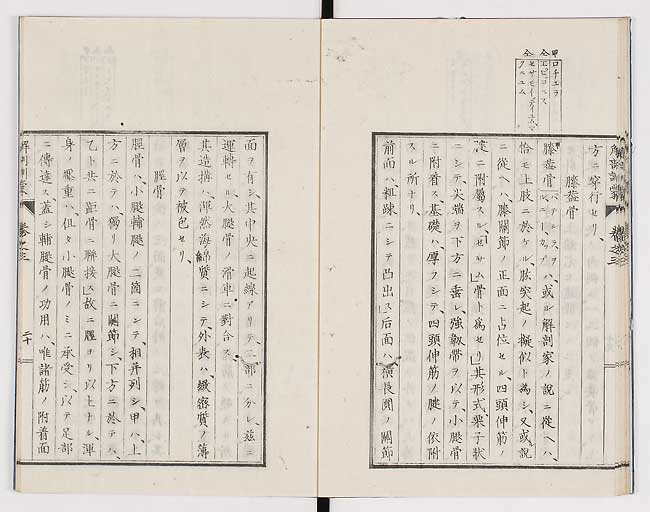 甲 ロチユラ
仝 エピコルス
仝 セサモイデイユム
クニユム
方ニ穿行セリ、
膝葢骨
膝葢骨 パテルラ ヲハ、或ル解剖家ノ說ニ從ヘハ、
恰モ上肢ニ於ケル、肱突起ノ擬似ト為シ、又或說
ニ從ヘハ、膝關節ノ正面ニ占位セル、四頭伸筋ノ
腱ニ附屬スル、セサム骨ト為セリ、其形式栗子狀
ニシテ、尖端ヲ下方ニ垂レ、強靱帶ヲ以テ、小腿骨
ニ附着ス、基礎ハ、厚フシテ、四頭伸筋ノ腱ノ依附
スル所ナリ、
前面ハ、粗踈ニシテ凸出シ、后面ハ、橫長圓ノ關節
面ヲ有シ、其中央ニ起線アリテ、二部ニ分レ、玆ニ
運轉セル、大腿骨ノ滑車ニ對合ス、
其造搆ハ、渾然海綿質ニシテ、外表ハ、緻密質ノ薄
層ヲ以テ被包セリ、
脛骨
脛骨ハ、小腿輔腿ノ二箇ニシテ、相幷列シ、甲ハ、上
方ニ於テハ、獨リ大腿骨ニ關節シ、下方ニ於テハ、
乙ト共ニ、距骨ニ聯接ス、故ニ脛ヨリ以上ナル、渾
身ノ壓重ハ、但タ小腿骨ノミニ承受シ、以テ足部
ニ傳達ス、蓋シ輔腿骨ノ功用ハ、唯諸筋ノ附着面
卷之三
二十